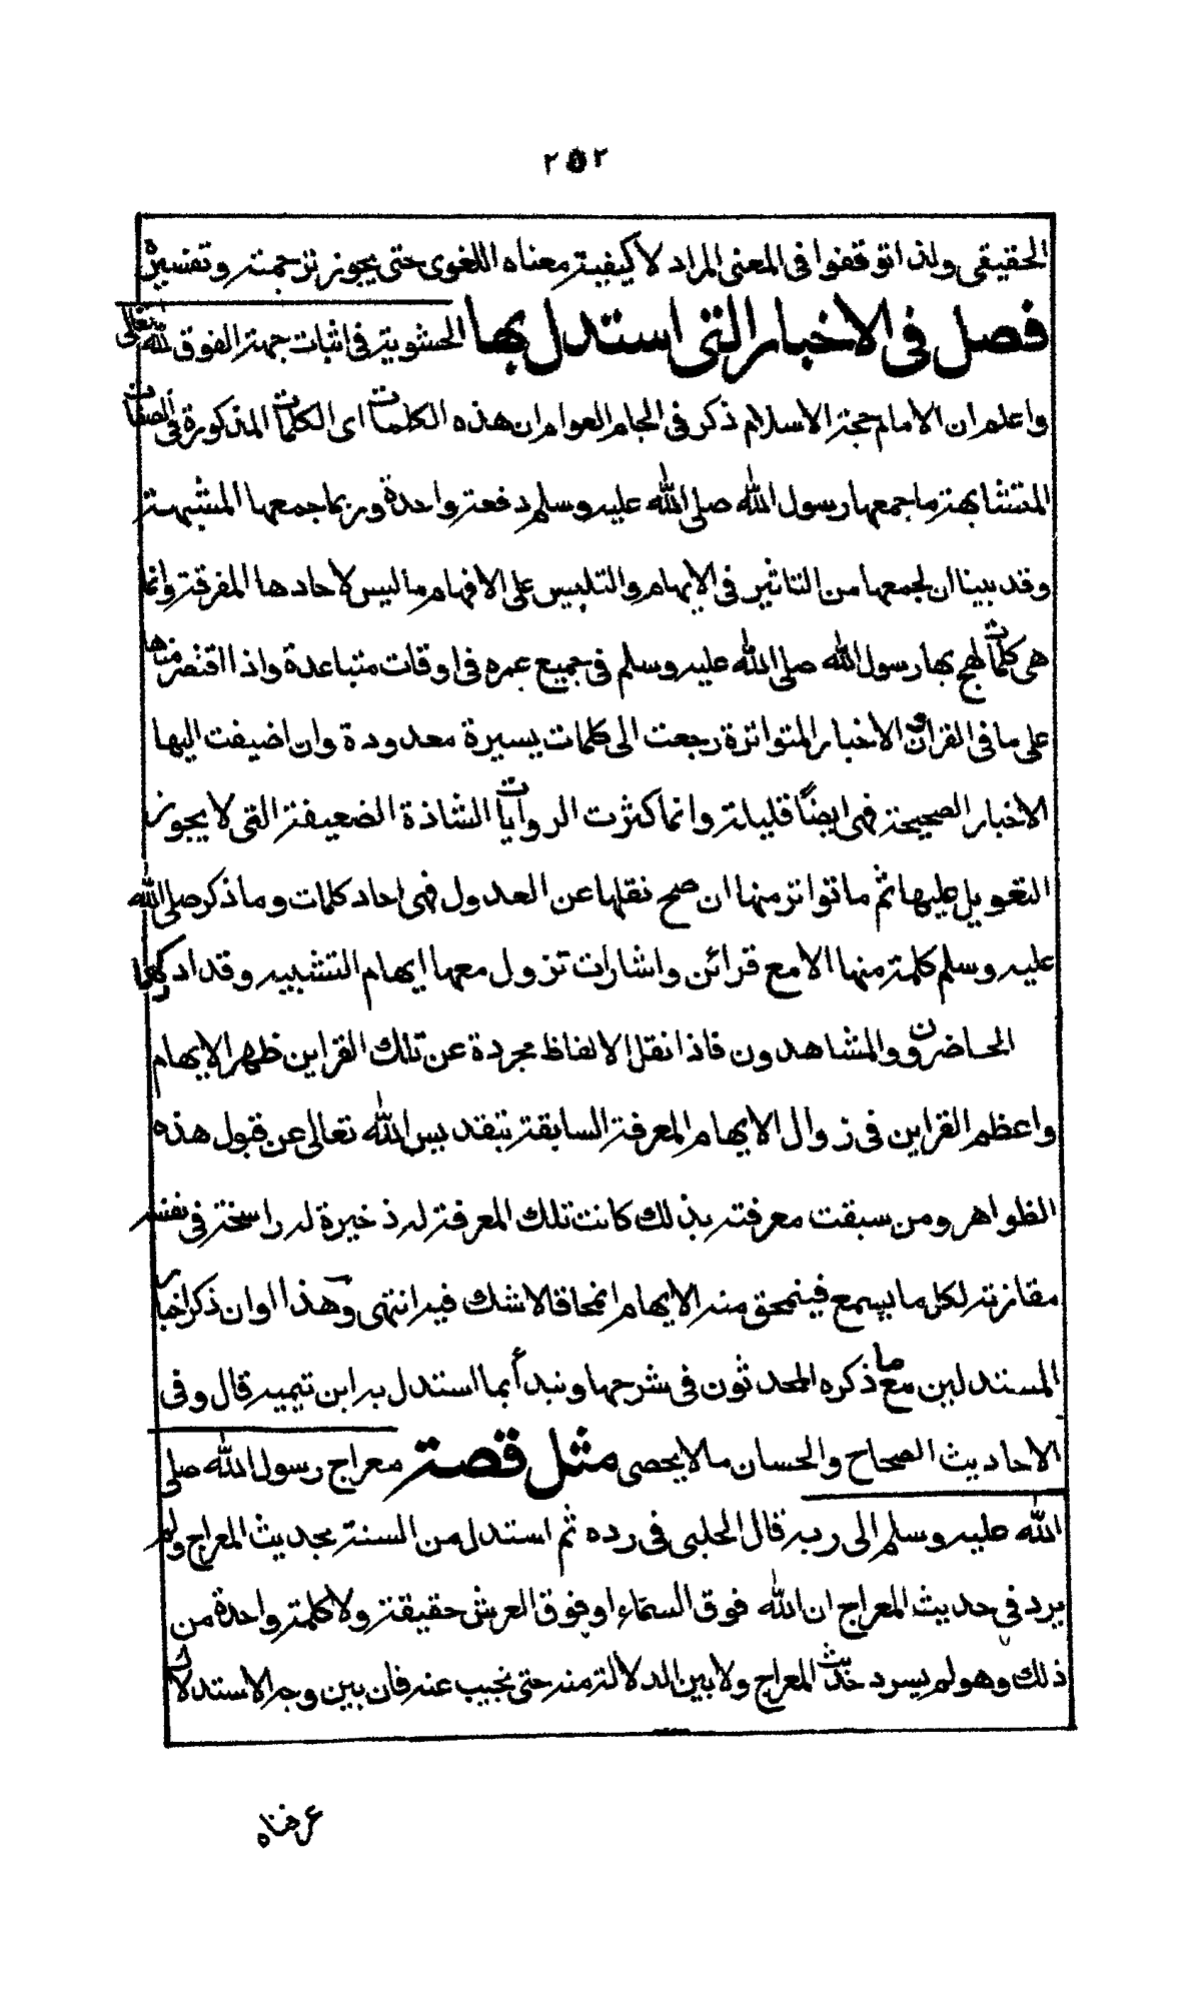 ٢٥٢
الحقيقي ولذا توقفوا في المعنى المراد لا كيفية معناه اللغوي حتى يجوز ترجمته وتفسيره
فصل في الاخبار التي استدل بها الحشوية في اثبات جهة الفوق لله تعالى
واعلم ان الامام حجة الاسلام ذكر في الجام العوام ان هذه الكلمات اى الكلمات المذكورة في الصفات
المتشابهة ما جمعها رسول الله صلى الله عليه وسلم دفعة واحدة وربما جمعها المشبهة
وقد بينا ان لجمعها من التاثير في الايهام والتلبيس على الافهام ما ليس لاحادها المفرقة وانما
هى كلمات لهج بها رسول الله صلى الله عليه وسلم في جميع عمره في اوقات متباعدة واذا اقتصر منها
على ما في القران والاخبار المتواترة رجعت الى كلمات يسيرة معدودة وان اضيفت اليها
الاخبار الصحيحة فهى ايضًا قليلة وانما كثرت الروايات الشاذة الضعيفة التي لا يجوز
التعويل عليها ثم ما تواتر منها ان صح نقلها عن العدول فهى احاد كلمات وما ذكر صلى الله
عليه وسلم كلمة منها الا مع قرائن واشارات تزول معها ايهام التشبيه وقد ادركها
الحاضرون والمشاهدون فاذا نقل الالفاظ مجردة عن تلك القراين ظهر الايهام
واعظم القراين في زوال الايهام المعرفة السابقة بتقديس الله تعالى عن قبول هذه
الظواهر ومن سبقت معرفته بذلك كانت تلك المعرفة له ذخيرة له راسخة في نفسه
مقارنة لكل ما يسمع فينمحق منه الايهام انمحاقا لا شك فيه انتهى وهذا اوان ذكر اخبار
المستدلين مع ما ذكره المحدثون في شرحها ونبدأ بما استدل به ابن تيميه قال وفى
الاحاديث الصحاح والحسان ما لا يحصى مثل قصة معراج رسول الله صلى
الله عليه وسلم الى ربه قال الحلبى في رده ثم استدل من السنة بحديث المعراج ولم
يرد في حديث المعراج ان الله فوق السماء او فوق العرش حقيقة ولا كلمة واحدة من
ذلك وهو لم يسرد حديث المعراج ولا بين الدلالة منه حتى نجيب عنه فان بين وجه الاستدلال
عرفناه